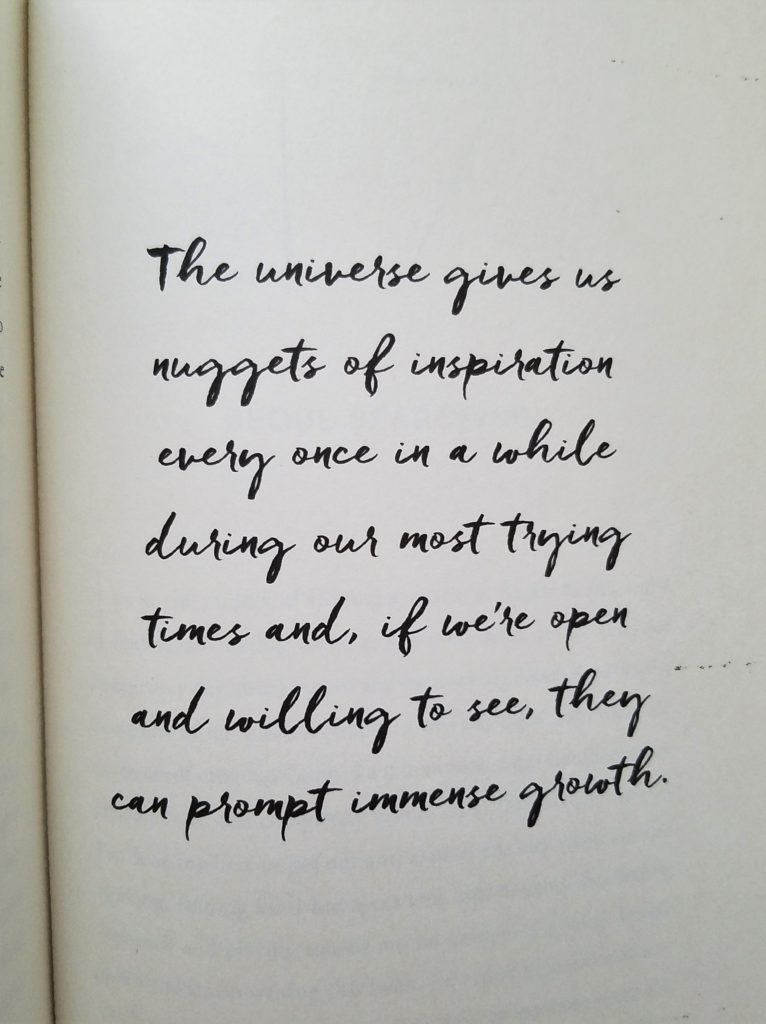 The universe gives us
nuggets of inspiration
every once in a while
during our most trying
times and, if we're open
and willing to see, they
can prompt immense growth.